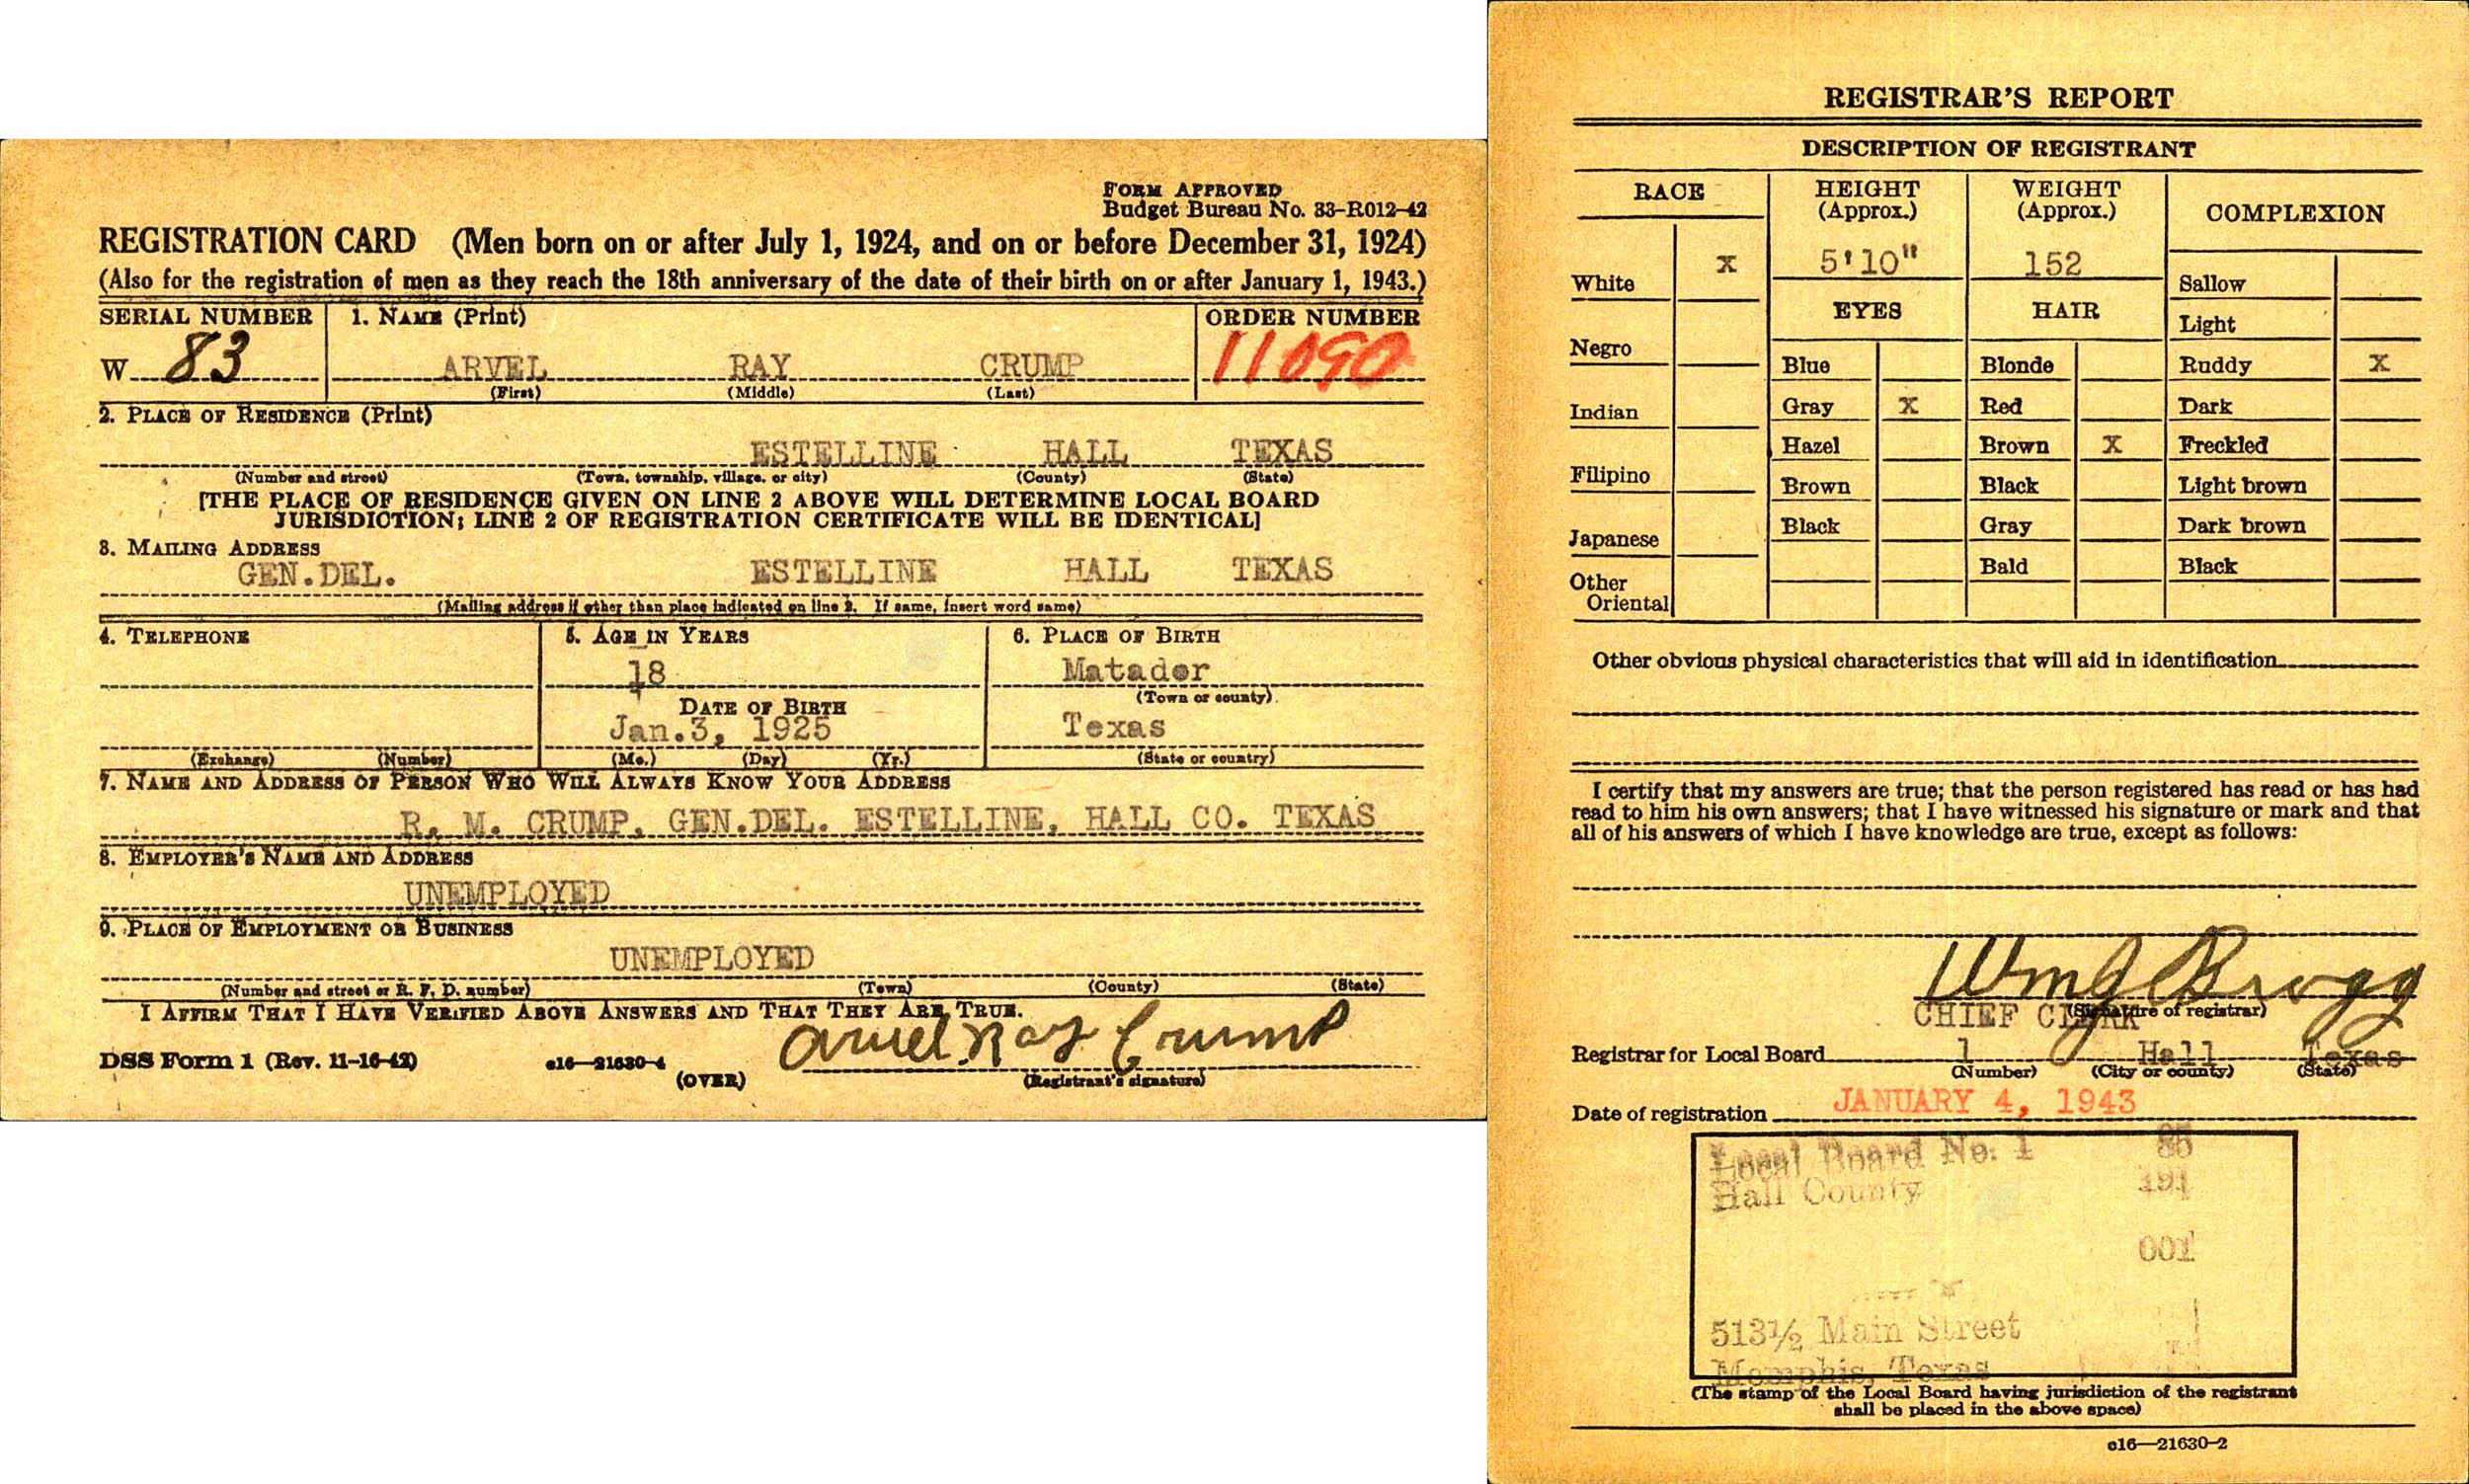 FORM APPROVED
Budget Bureau No. 33-R012-42
REGISTRATION CARD (Men born on or after July 1, 1924, and on or before December 31, 1924)
(Also for the registration of men as they reach the 18th anniversary of the date of their birth on or after January 1, 1943.)
SERIAL NUMBER 1. NAME (Print) ORDER NUMBER
W 83 ARVEL RAY CRUMP 11090
(First) (Middle) (Last)
2. PLACE OF RESIDENCE (Print)
ESTELLINE HALL TEXAS
(Number and street) (Town, township, village, or city) (County) (State)
[THE PLACE OF RESIDENCE GIVEN ON LINE 2 ABOVE WILL DETERMINE LOCAL BOARD
JURISDICTION; LINE 2 OF REGISTRATION CERTIFICATE WILL BE IDENTICAL]
3. MAILING ADDRESS
GEN.DEL. ESTELLINE HALL TEXAS
(Mailing address if other than place indicated on line 2. If same, insert word same)
4. TELEPHONE 5. AGE IN YEARS 6. PLACE OF BIRTH
18 Matador
(Town or county)
DATE OF BIRTH
Jan.3, 1925 Texas
(Exchange) (Number) (Mo.) (Day) (Yr.) (State or country)
7. NAME AND ADDRESS OF PERSON WHO WILL ALWAYS KNOW YOUR ADDRESS
R. M. CRUMP, GEN.DEL. ESTELLINE, HALL CO. TEXAS
8. EMPLOYER'S NAME AND ADDRESS
UNEMPLOYED
9. PLACE OF EMPLOYMENT OR BUSINESS
UNEMPLOYED
(Number and street or R. F. D. number) (Town) (County) (State)
I AFFIRM THAT I HAVE VERIFIED ABOVE ANSWERS AND THAT THEY ARE TRUE.
Arvel Ray Crump
DSS Form 1 (Rev. 11-16-42) c16—21630-4 (OVER) (Registrant's signature)
REGISTRAR'S REPORT
DESCRIPTION OF REGISTRANT
RACE HEIGHT (Approx.) WEIGHT (Approx.) COMPLEXION
White X 5'10" 152 Sallow
EYES HAIR Light
Negro Blue Blonde Ruddy X
Indian Gray X Red Dark
Hazel Brown X Freckled
Filipino Brown Black Light brown
Japanese Black Gray Dark brown
Bald Black
Other
Oriental
Other obvious physical characteristics that will aid in identification
I certify that my answers are true; that the person registered has read or has had
read to him his own answers; that I have witnessed his signature or mark and that
all of his answers of which I have knowledge are true, except as follows:
Wm J Bragg
(Signature of registrar)
CHIEF CLERK
Registrar for Local Board 1 Hall Texas
(Number) (City or county) (State)
Date of registration JANUARY 4, 1943
Local Board No. 1
Hall County 191
001
513½ Main Street
Memphis, Texas
(The stamp of the Local Board having jurisdiction of the registrant
shall be placed in the above space)
c16—21630-2